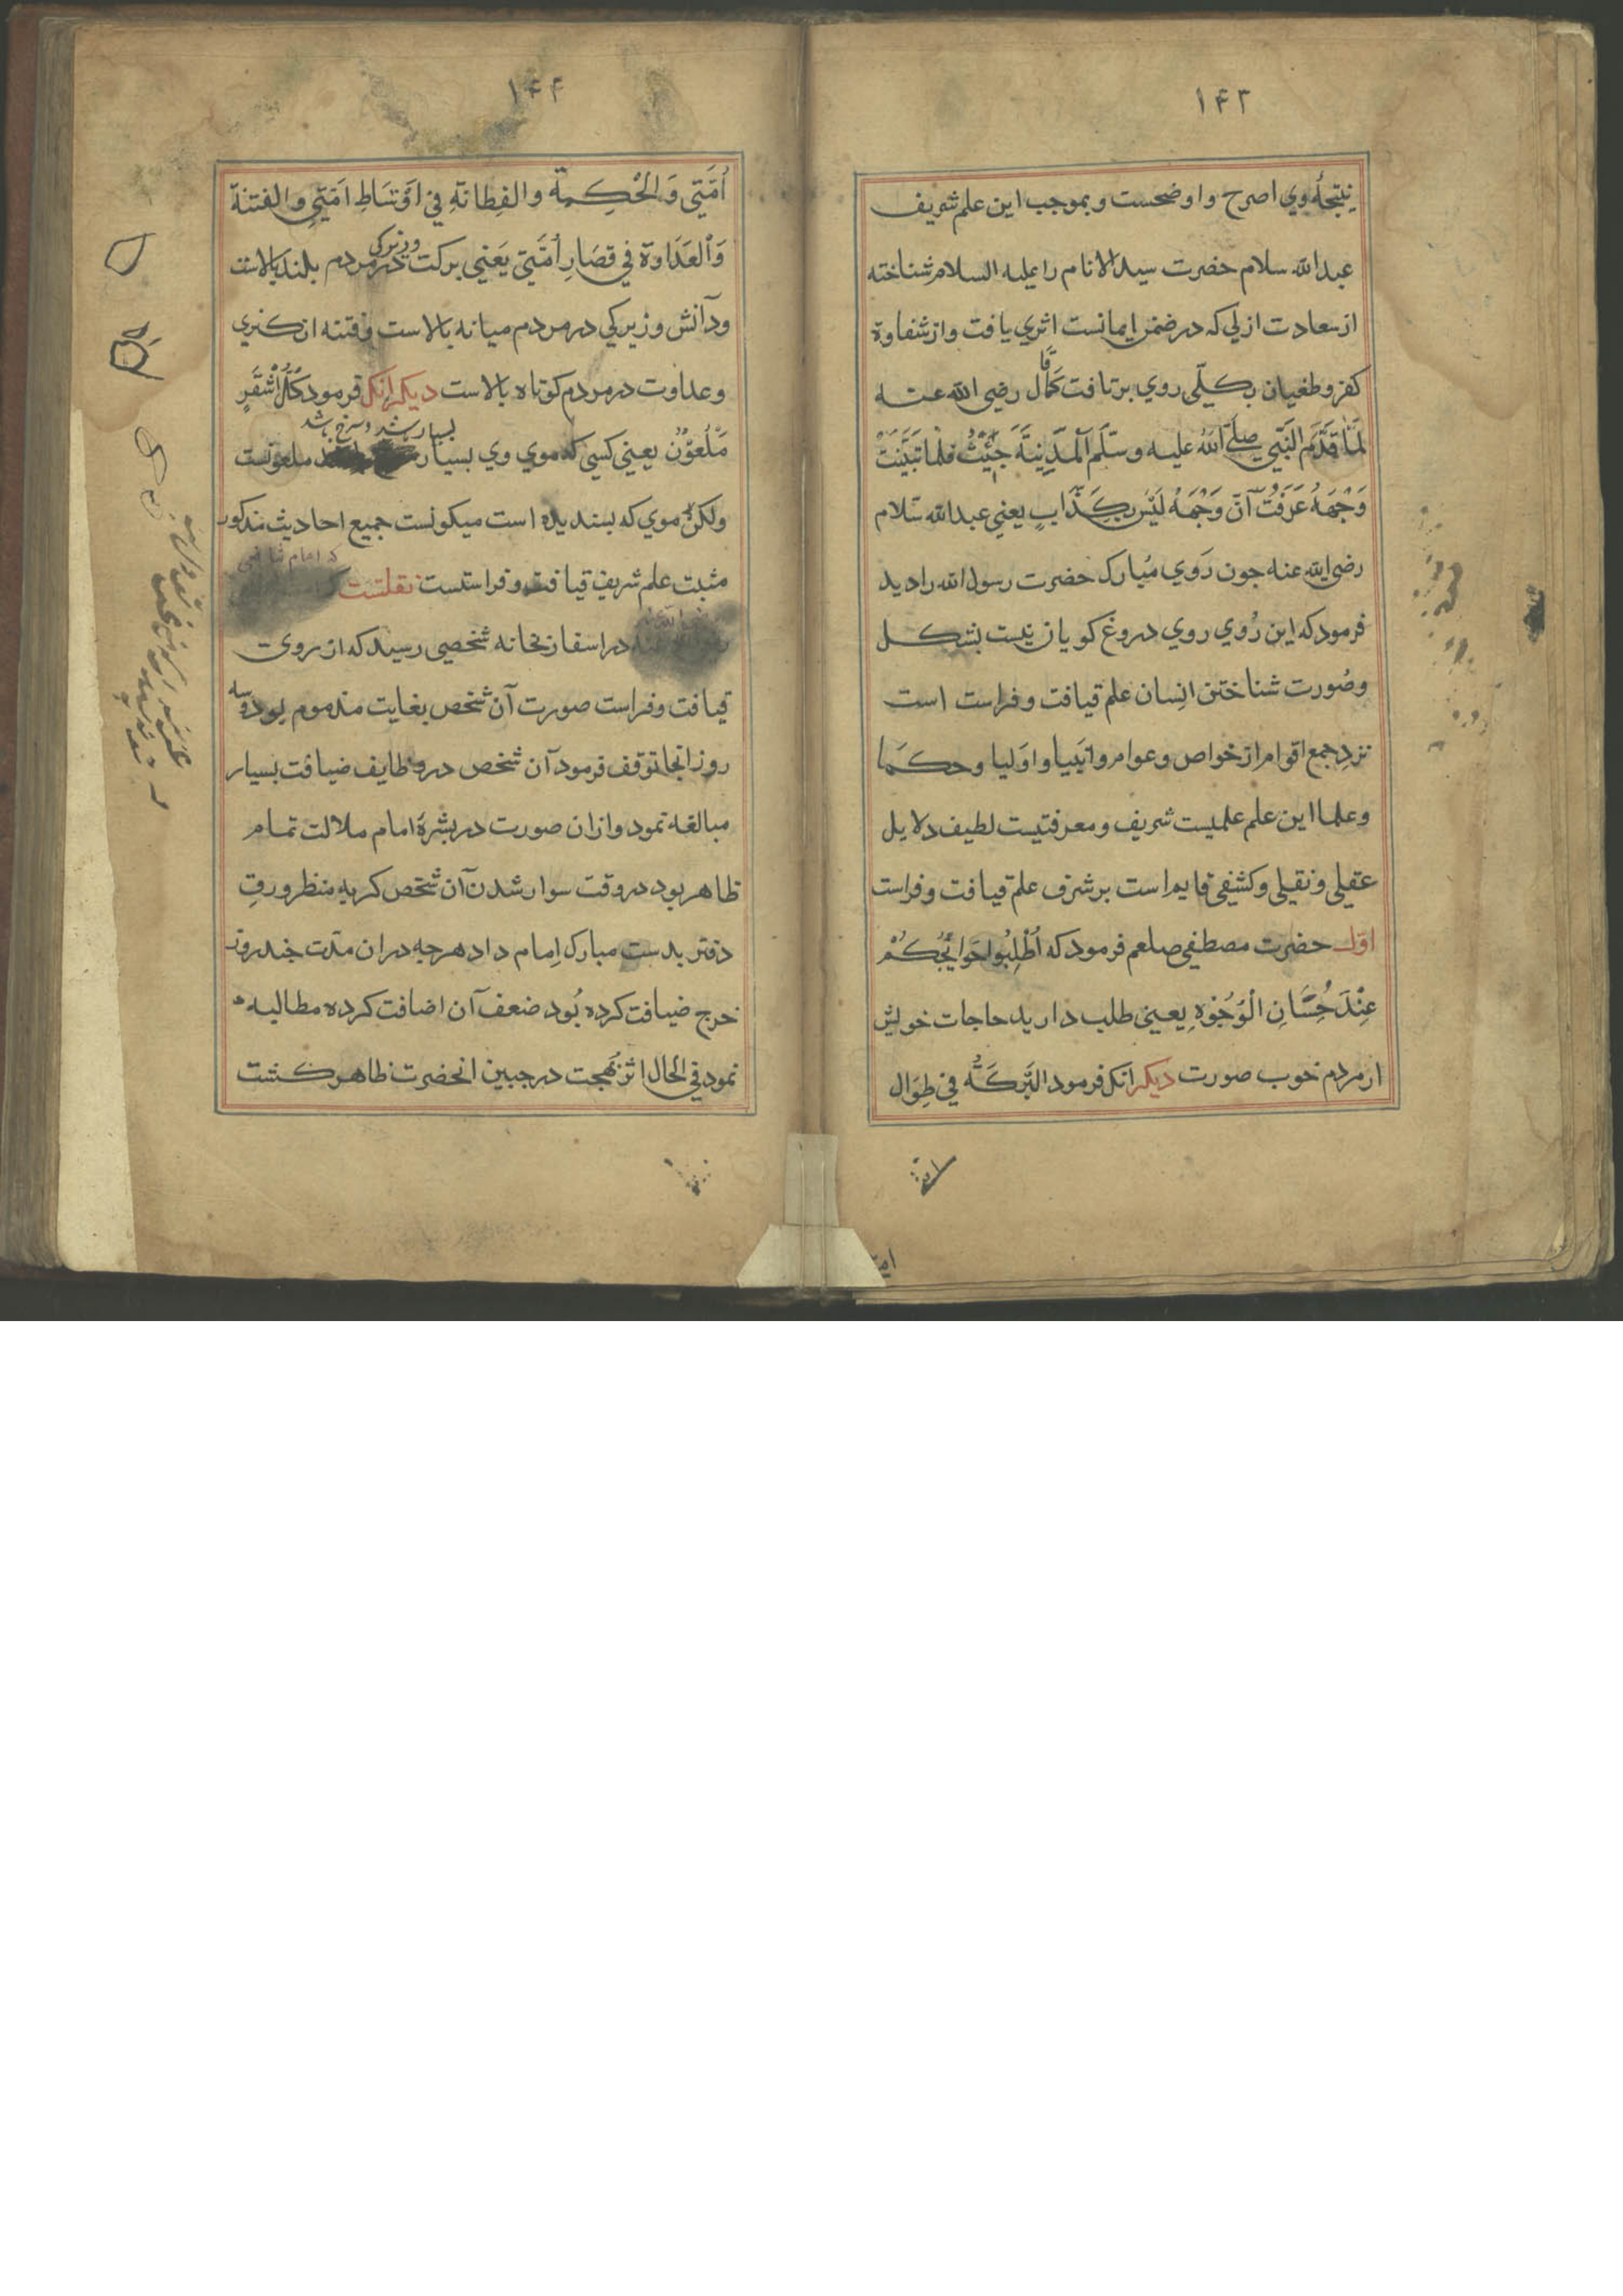 ۱۴۳
نتیجهٔ وي اصرح واوضحست وبموجب این علم شریف
عبدالله سلام حضرت سیدالانام را علیه السلام شناخته
از سعادت ازلي که در ضمن ایمانست اثري یافت واز شقاوة
کفر وطغیان بکلّی روي برتافت کما قال رضی الله عنه
لمّا قدّم النّبي صلّی الله علیه وسلّم المدینة جئتُ فلما تبیّنتُ
وَجْهَهُ عَرَفْتُ اَنَّ وَجْهَهُ لَیْسَ بِکَذّابٍ یعني عبدالله سلام
رضی الله عنه جون رَوي مُبارک حضرت رسول الله را دید
فرمود که این رُوي روي دروغ کویان نیست بشکل
وصُورت شناختن انسان علم قیافت وفراست است
نزد جمع اقوام از خواص وعوام وانبیا واولیا وحکما
وعلما این علم علمیست شریف ومعرفتیست لطیف دلایل
عقلی ونقیلی وکشفی قایم است بر شرف علم قیافت وفراست
اوّل حضرت مصطفی صلعم فرمود که اُطْلِبُوا حَوَائِجُکُمْ
عِنْدَ حُسَّانِ الْوُجُوْهِ یعنی طلب دارید حاجات خویش
از مردم خوب صورت دیکر انکه فرمود البَرَکَةُ في طِوَال
۱۴۴
اُمَّتِي وَالْحِکِمَة والفِطانَةِ في اَوْسَاطِ اُمَّتِي والفتنة
وَالْعَدَاوة في قِصَارِ اُمَّتِي یَعْنِي برکت در مردم بلند بالاست
وزیرکی
ودانش وزیرکي در مردم میانه بالاست وفتنه انکیزي
وعداوت در مردم کوتاه بالاست دیکر انکه فرمود کُلُّ اَشْقَرٍ
بسیار باشد وسرخ باشد
مَلْعُوْنٌ یعني کسي که موي وي بسیار ملعونست
ولکن موي که بسندیده است میکونست جمیع احادیث مذکور
که امام شافعی
مثبت علم شریف قیافت وفراستست نقلست
در اسفار بخانه شخصی رسید که از روی
قیافت وفراست صورت آن شخص بغایت مذموم بود وسه
روز انجا توقف فرمود آن شخص در وظایف ضیافت بسیار
مبالغه نمود وازان صورت در بشرهٔ امام ملالت تمام
ظاهر بود در وقت سوار شدن آن شخص کریه منظر ورق
دفتر بدست مبارک اِمام داد هرجه دران مدّت جند روز
خرج ضیافت کرده بُود ضعف آن اضافت کرده مطالبه
نمود في الحال اثر بهجت در جبین انحضرت ظاهر کشت